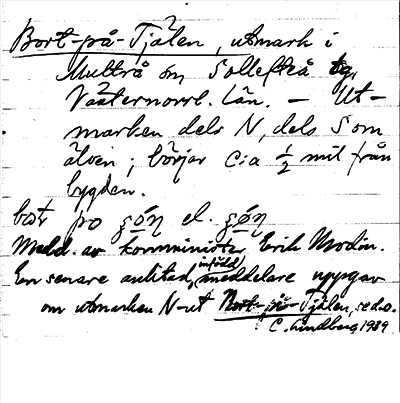 Bort-på-Tjälen, utmark i
Multrå om Sollefteå tg,
Västernorrl. län. – Ut-
marken dels N, dels S om
älven; börjar c:a ½ mil från
bygden.
po el.
Medd. av komminister Erik Modin.
En senare anlitad, infödd meddelare uppgav
om utmarken N-ut Bort-på-Tjälen, se d.o.
C. Lindberg, 1939